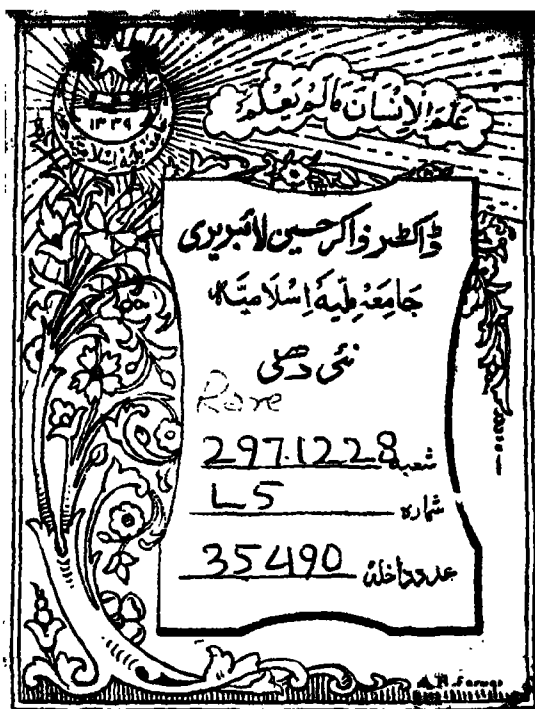 ۱۳۳۹
عَلَّمَ الْاِنْسَانَ مَا لَمْ يَعْلَمْ
ڈاکٹر ذاکر حسین لائبریری
جَامِعَہ مِلّیَہ اِسْلَامِیَّہ
نئی دھلی
Rare
شعبہ 297.1228
شمارہ L5
عدد داخلہ 35490